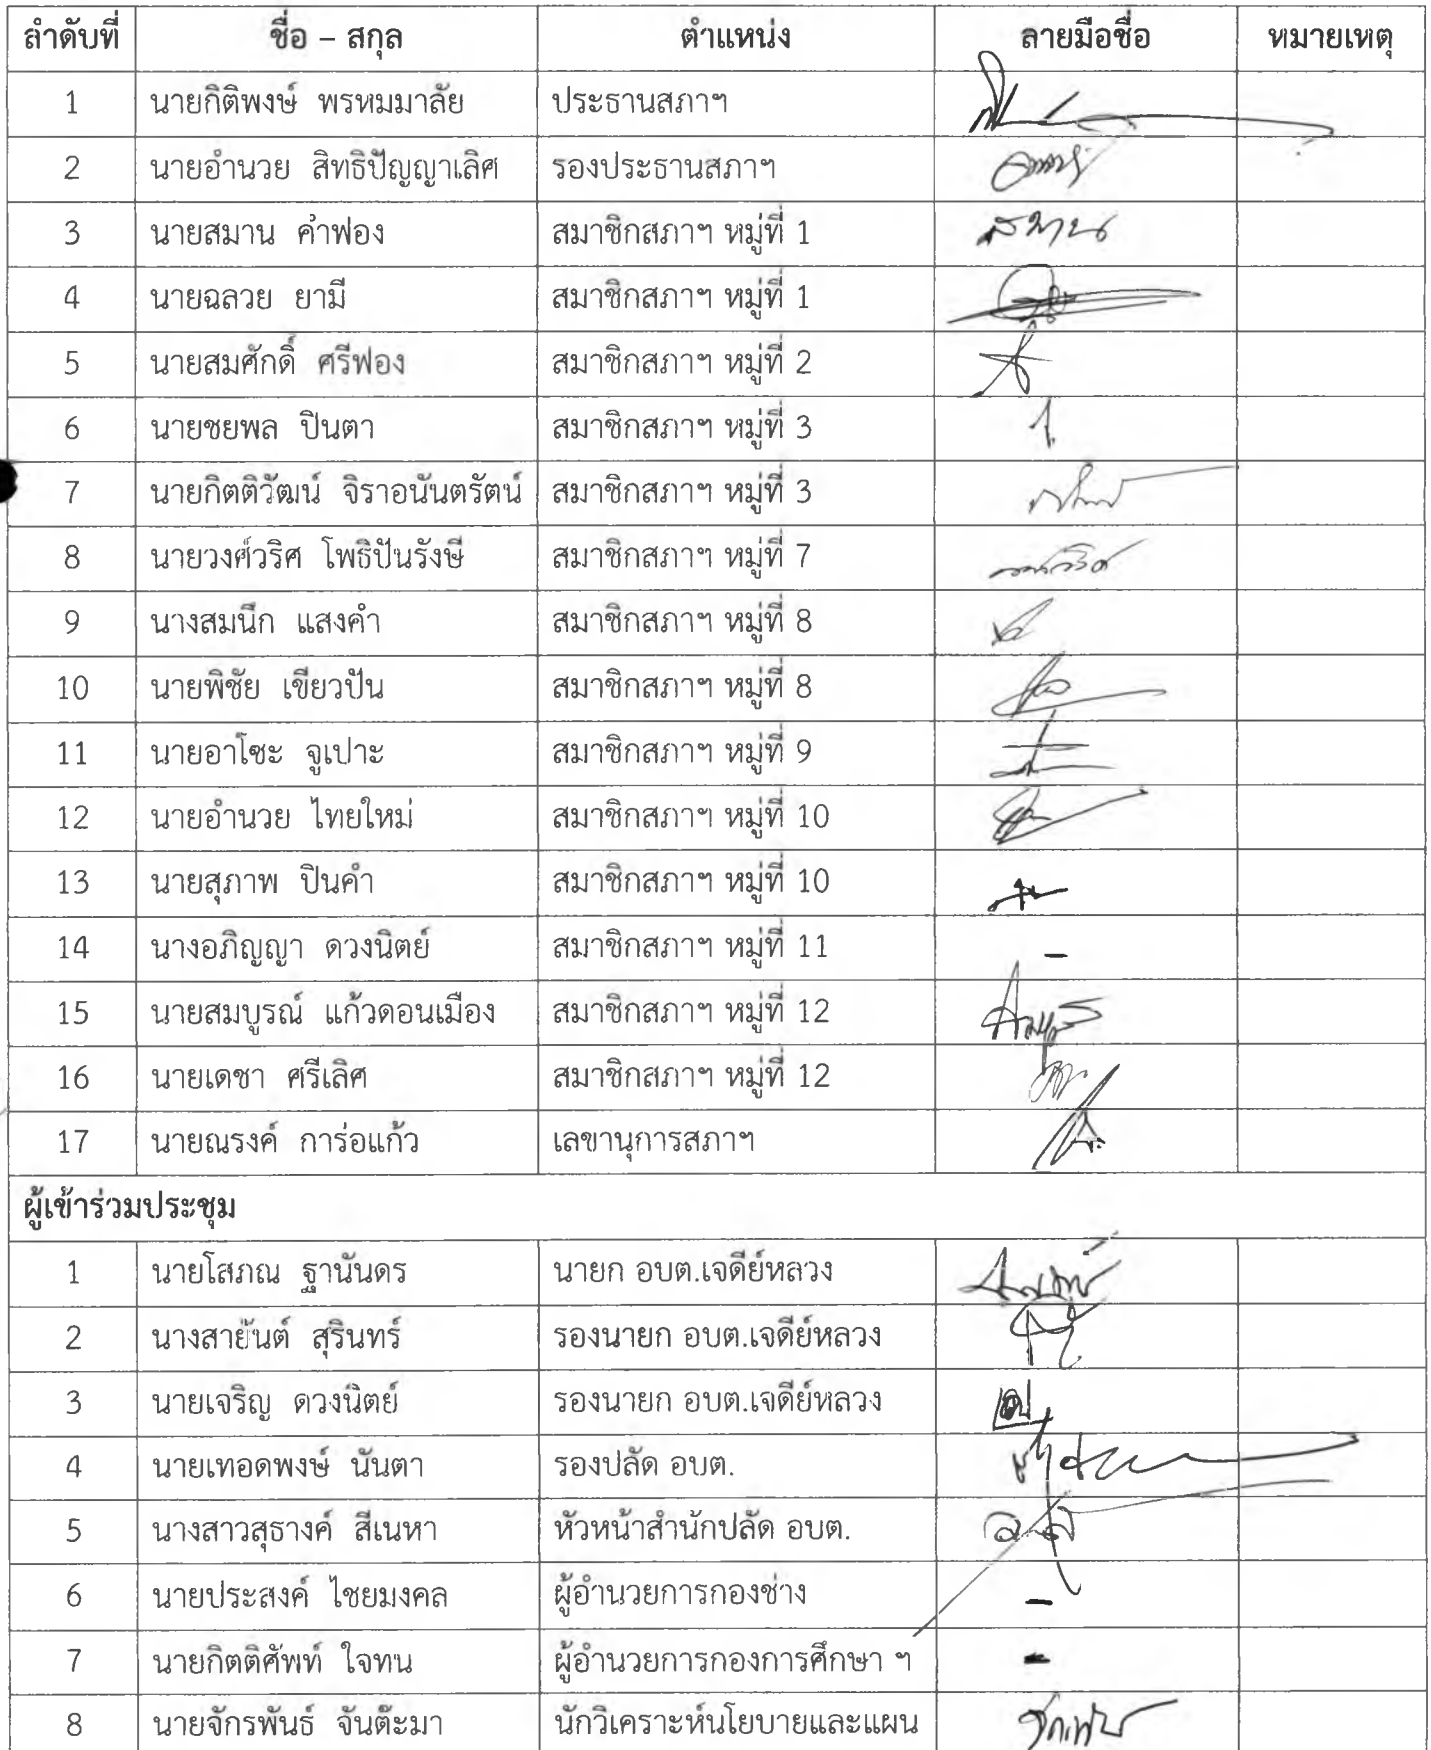 ลำดับที่ ชื่อ – สกุล ตำแหน่ง ลายมือชื่อ หมายเหตุ
1 นายกิติพงษ์ พรหมมาลัย ประธานสภาฯ
2 นายอำนวย สิทธิปัญญาเลิศ รองประธานสภาฯ
3 นายสมาน คำฟอง สมาชิกสภาฯ หมู่ที่ 1 สมาน
4 นายฉลวย ยามี สมาชิกสภาฯ หมู่ที่ 1
5 นายสมศักดิ์ ศรีฟอง สมาชิกสภาฯ หมู่ที่ 2
6 นายชยพล ปินตา สมาชิกสภาฯ หมู่ที่ 3
7 นายกิตติวัฒน์ จิราอนันตรัตน์ สมาชิกสภาฯ หมู่ที่ 3
8 นายวงศ์วริศ โพธิปันรังษี สมาชิกสภาฯ หมู่ที่ 7
9 นางสมนึก แสงคำ สมาชิกสภาฯ หมู่ที่ 8
10 นายพิชัย เขียวปัน สมาชิกสภาฯ หมู่ที่ 8
11 นายอาโซะ จูเปาะ สมาชิกสภาฯ หมู่ที่ 9
12 นายอำนวย ไทยใหม่ สมาชิกสภาฯ หมู่ที่ 10
13 นายสุภาพ ปินคำ สมาชิกสภาฯ หมู่ที่ 10
14 นางอภิญญา ดวงนิตย์ สมาชิกสภาฯ หมู่ที่ 11 -
15 นายสมบูรณ์ แก้วดอนเมือง สมาชิกสภาฯ หมู่ที่ 12
16 นายเดชา ศรีเลิศ สมาชิกสภาฯ หมู่ที่ 12
17 นายณรงค์ การ่อแก้ว เลขานุการสภาฯ
ผู้เข้าร่วมประชุม
1 นายโสภณ ฐานันดร นายก อบต.เจดีย์หลวง
2 นางสายันต์ สุรินทร์ รองนายก อบต.เจดีย์หลวง
3 นายเจริญ ดวงนิตย์ รองนายก อบต.เจดีย์หลวง
4 นายเทอดพงษ์ นันตา รองปลัด อบต.
5 นางสาวสุธางค์ สีเนหา หัวหน้าสำนักปลัด อบต.
6 นายประสงค์ ไชยมงคล ผู้อำนวยการกองช่าง -
7 นายกิตติศัพท์ ใจทน ผู้อำนวยการกองการศึกษา ฯ -
8 นายจักรพันธ์ จันต๊ะมา นักวิเคราะห์นโยบายและแผน